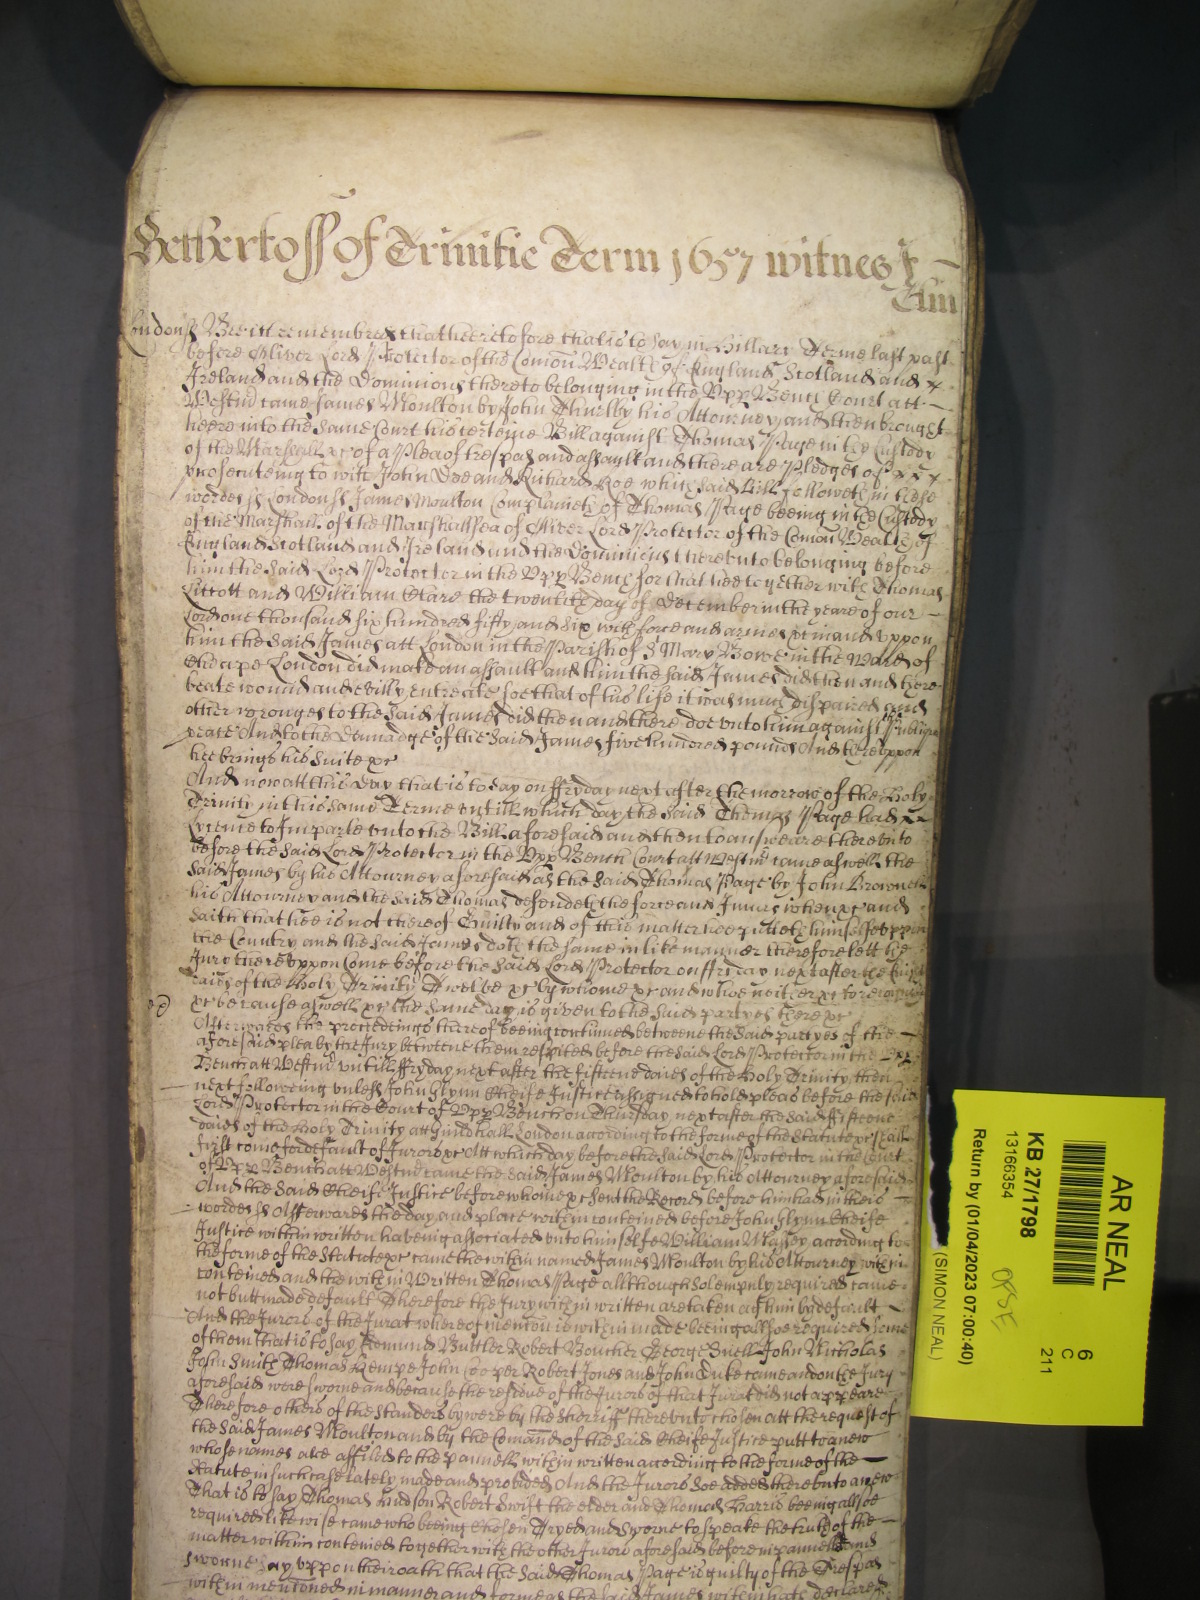 Hetherto ss of Trinitie Term 1657 witnes
London ss Bee it remembred that heretofore that is to say in Hillary Terme last past
before Oliver Lord Protector of the Comon Wealth of England Scotland and
Ireland and the Dominions thereto belonging in the Upp Bench Court att
Westm came James Moulton by John Thurlby his Attourney and then brought
heere into the same Court his certeine Bill against Thomas Page in the Custody
of the Marshall &c of a Plea of trespas and assault and there are Pledges of
prosecuteing to witt John Doe and Richard Roe which said Bill followeth in these
wordes ss London ss James Moulton Complaineth of Thomas Page beeing in the Custody
of the Marshall of the Marshallsea of Oliver Lord Protector of the Comon Wealth of
England Scotland and Ireland and the Dominions thereunto belonging before
him the said Lord Protector in the Upp Bench for that hee together with Thomas
and William Clare the twentith day of December in the yeare of our
Lord one thousand six hundred fifty and six with force and armes &c in and uppon
him the said James att London in the Parish of S Mary Bowe in the Ward of
Cheape London did make an assault and him the said James did then and there
beate wound and evilly entreate soe that of his life it was much dispaired and
other wronges to the said James did then and there doe unto him against the Publique
peace And to the damadge of the said James five hundred pounds And thereuppon
hee brings his suite &c
And now att this day that is to say on ffryday next after the morrow of the Holy
Trinity in this same Terme untill which day the said Thomas Page had
lycence to Imparle unto the Bill aforesaid and then to answeare thereunto
before the said Lord Protector in the Upp Bench Court att Westm came aswell the
said James by his Attourney aforesaid as the said Thomas Page by John
his Attourney and the said Thomas defendeth the force and Injury when &c and
saith that hee is not thereof Guilty and of this matter hee putteth himselfe uppon
the Country and the said James doth the same in like manner therefore lett the
Jury thereuppon Come before the said Lord Protector on ffriday next after the
daies of the Holy Trinity Twelve &c by whome &c and whoe neither &c to recognize
&c because aswell &c the same day is given to the said partyes there &c
Afterwards the proceedings thereof beeing continued betweene the said partyes of the
aforesaid plea by the Jury betweene them respited before the said Lord Protector in the Upp
Bench att Westm untill ffryday next after the fifteene daies of the Holy Trinity then
next followeing unless John Glynn Cheife Justice assigned to hold pleas before the said
Lord Protector in the Court of Upp Bench on Thursday next after the said fifteene
daies of the Holy Trinity att Guildhall London according to the forme of the Statute &c shall
first come for default of Jurors &c Att which day before the said Lord Protector in the Court
of Upp Bench att Westm came the said James Moulton by his Attourney aforesaid
And the said Cheife Justice before whome &c sent the Record before him had in theis
wordes ss Afterwards the day and place within conteined before John Glynn Cheife
Justice within written haveing associated unto himselfe William Massey according to
the forme of the Statute &c came the within named James Moulton by his Attourney within
conteined and the within Written Thomas Page allthough solempnly required came
not butt made default Therefore the Jury within written are taken against him by default
And the Jurors of the Jurat whereof mencon is within made beeing allsoe required some
of them that is to say Edmund Buttler Robert Boucher George John Nicholas
John Smith Thomas Kempe John Cooper Robert Jones and John Duke came and on the Jury
aforesaid were sworne and because the residue of the Jurors of that Jurat did not appeare
Therefore others of the Standers by were by the Sherriff thereunto chosen att the request of
the said James Moulton and by the Comand of the said Cheife Justice putt to anew
whose names are affiled to the pannell within written according to the forme of the
Statute in such case lately made and provided And the Jurors soe added thereunto anew
That is to say Thomas Hudson Robert Swift the elder and Thomas Harris beeing allsoe
required likewise came who beeing Chosen Tryed and sworne to speake the truth of the
matter within conteined together with the other Jurors aforesaid before impannelled and
sworne say uppon their oath that the said Thomas Page is guilty of the Trespas
within mencioned in manner and forme as the said James within hath declared
AR NEAL
6
C
211
KB 27/1798
13166354
Return by (01/04/2023 07:00:40)
(SIMON NEAL)